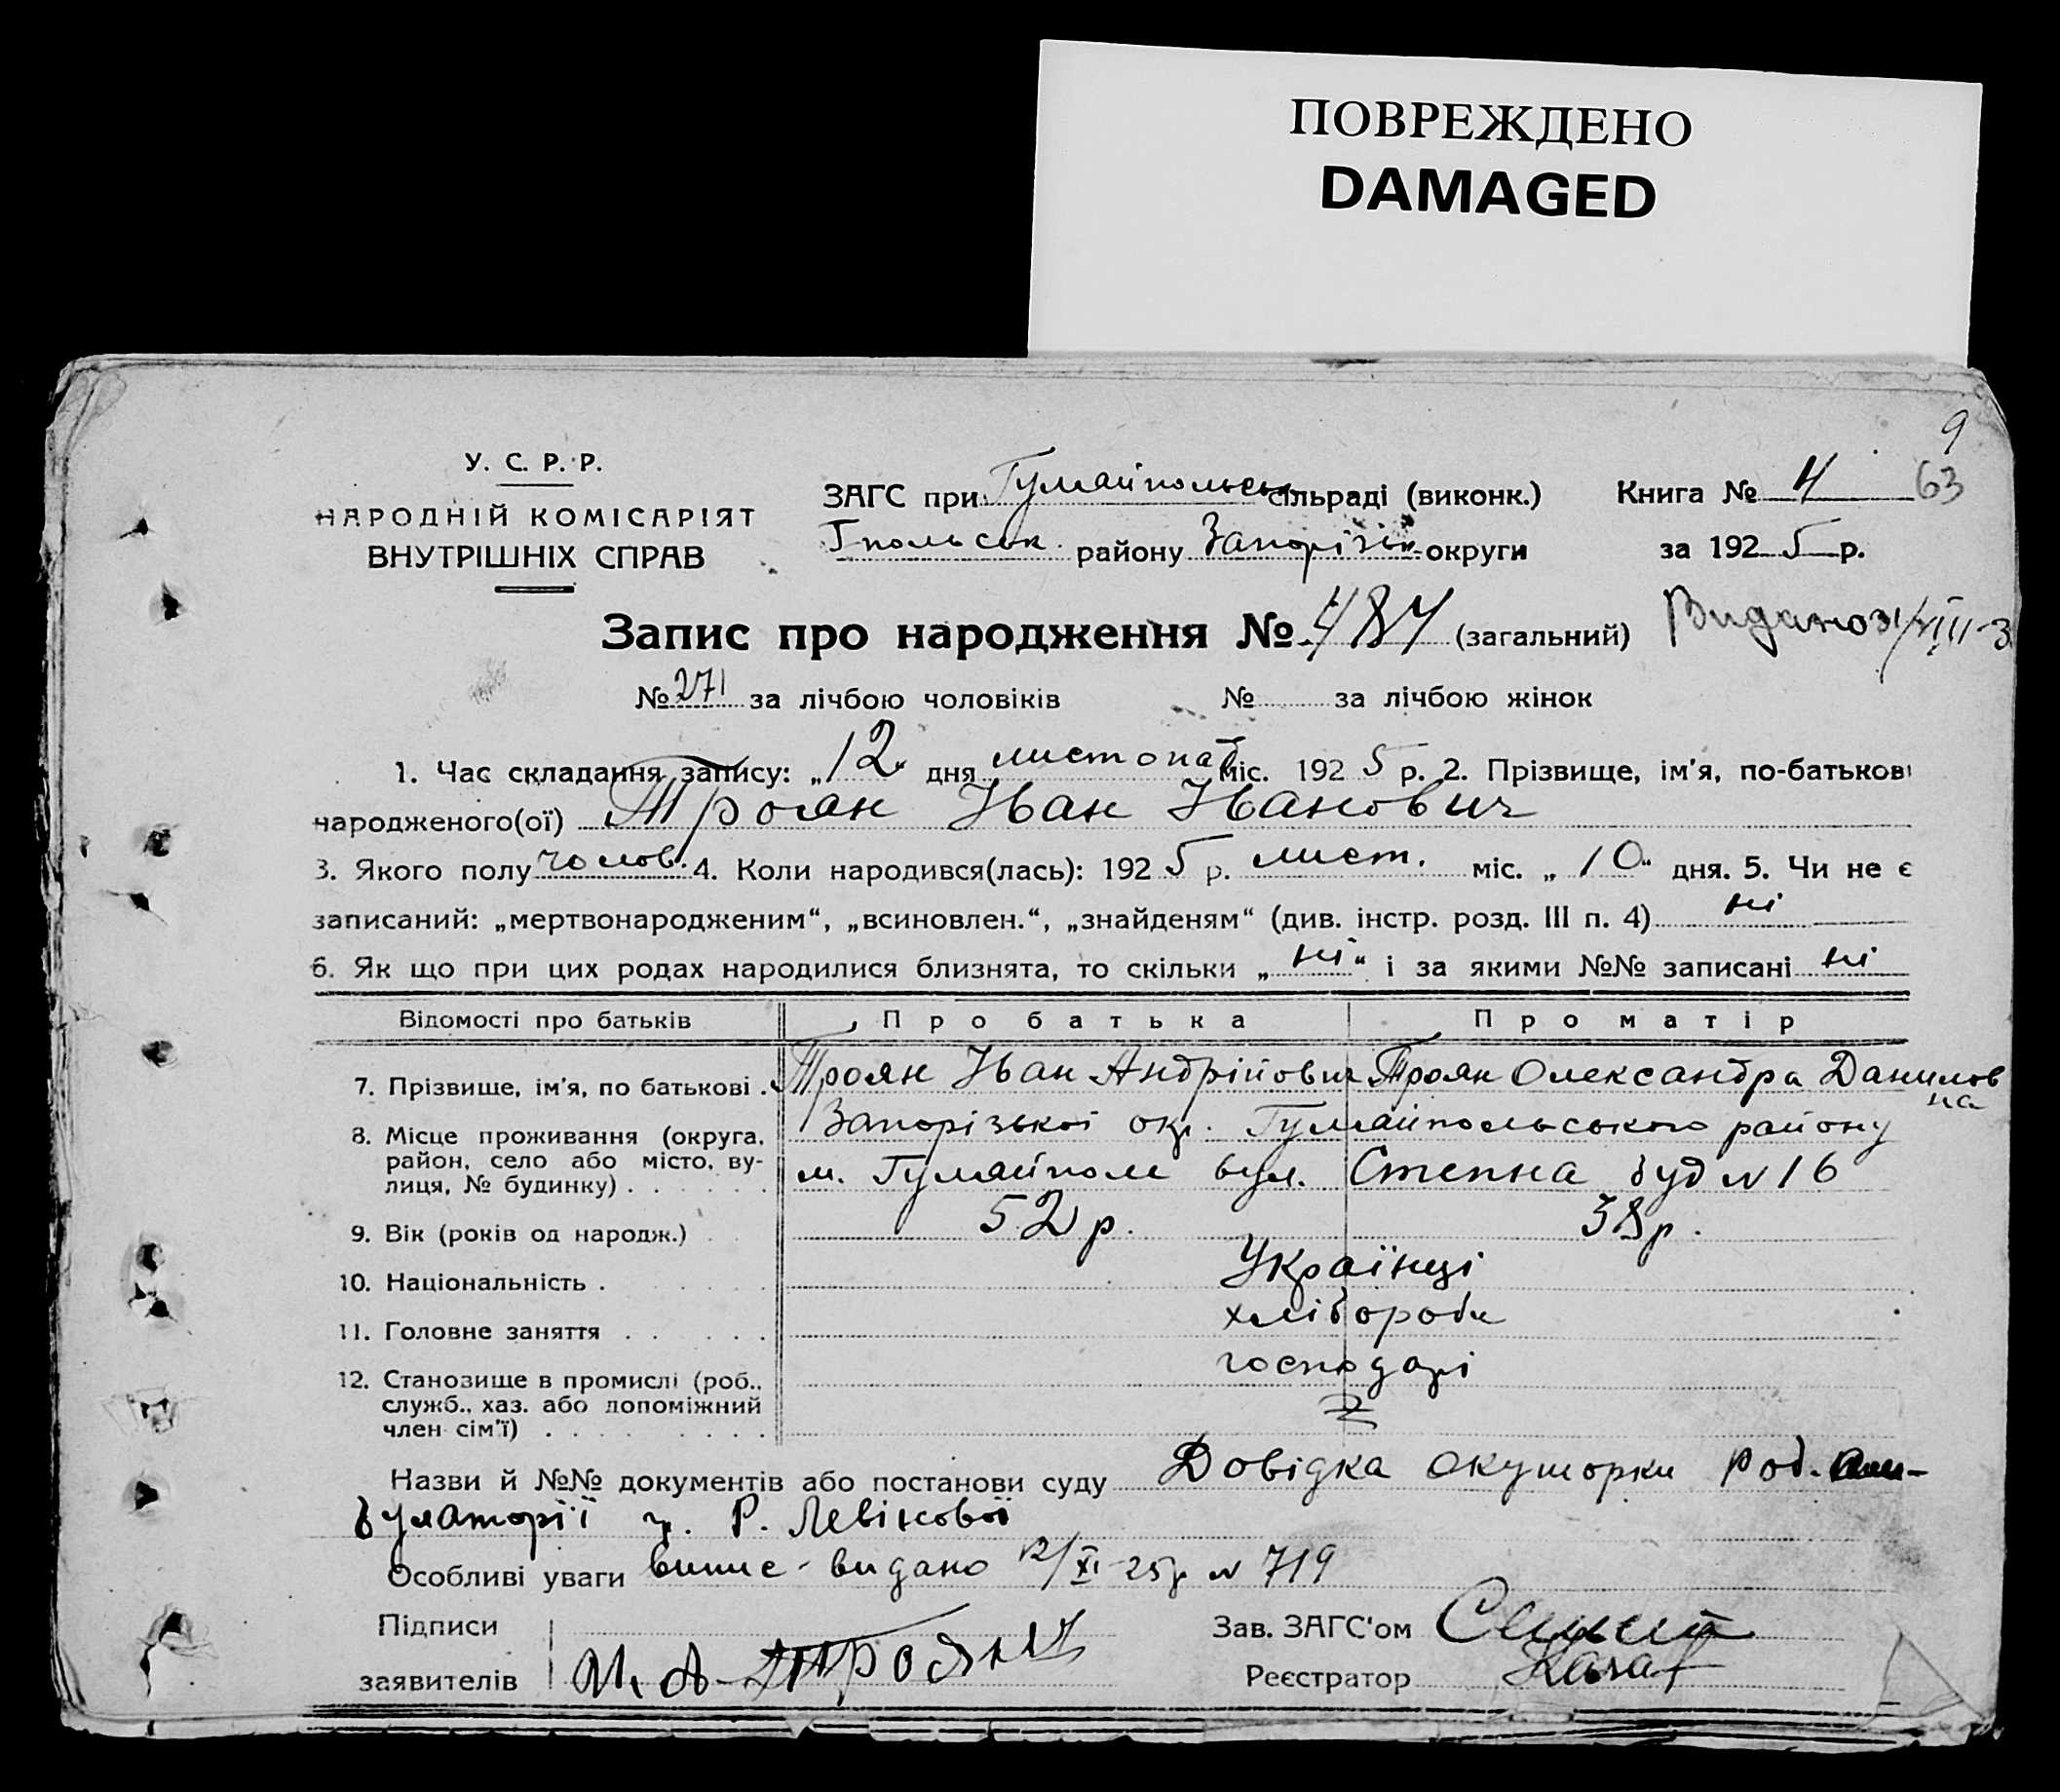 ПОВРЕЖДЕНО
DAMAGED
9
63
У. С. Р. Р.
НАРОДНІЙ КОМІСАРІЯТ
ВНУТРІШНІХ СПРАВ
ЗАГС при Гуляйпольськ сільраді (виконк.)
Гпольськ. району Запорізьк. округи
Книга № 4
за 1925 р.
Запис про народження № 484 (загальний)
Видано 31/VIII-3
№ 271 за лічбою чоловіків № за лічбою жінок
1. Час складання запису: „12“ дня листопад міс. 1925 р. 2. Прізвище, ім'я, по-батькові
народженого(ої) Троян Іван Іванович
3. Якого полу чолов. 4. Коли народився(лась): 1925 р. лист. міс. „10“ дня. 5. Чи не є
записаний: „мертвонародженим“, „всиновлен.“, „знайденям“ (див. інстр. розд. III п. 4) ні
6. Як що при цих родах народилися близнята, то скільки „ні“ і за якими №№ записані ні
Відомості про батьків Про батька Про матір
7. Прізвище, ім'я, по батькові . Троян Іван Андрійович Троян Олександра Данилов
на
8. Місце проживання (округа, Запорізької окр. Гуляйпольського району
район, село або місто, ву-
лиця, № будинку) . . . . . . м. Гуляйполе вул. Степна буд N 16
9. Вік (років од народж.) . . 52 р. 38 р.
10. Національність . . . . . Українці
11. Головне заняття . . . . . . хлібороби
12. Становище в промислі (роб., господарі
служб., хаз. або допоміжний
член сім'ї) . . . . . . . . .
Назви й №№ документів або постанови суду Довідка акушорки род. ам-
булаторії гр. Р. Левікової
Особливі уваги випис видано 12/XI 25р N 719
Підписи
заявителів И. А. Троян
Зав. ЗАГС'ом
Реєстратор